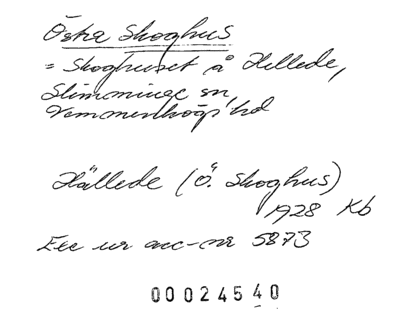 Östra Skoghus
= Skoghuset å Hellede,
Slimminge sn,
Vemmenhögs hd
Hällede (Ö. Skoghus)
1928 Kb
Exc ur acc-nr 5873
00024540